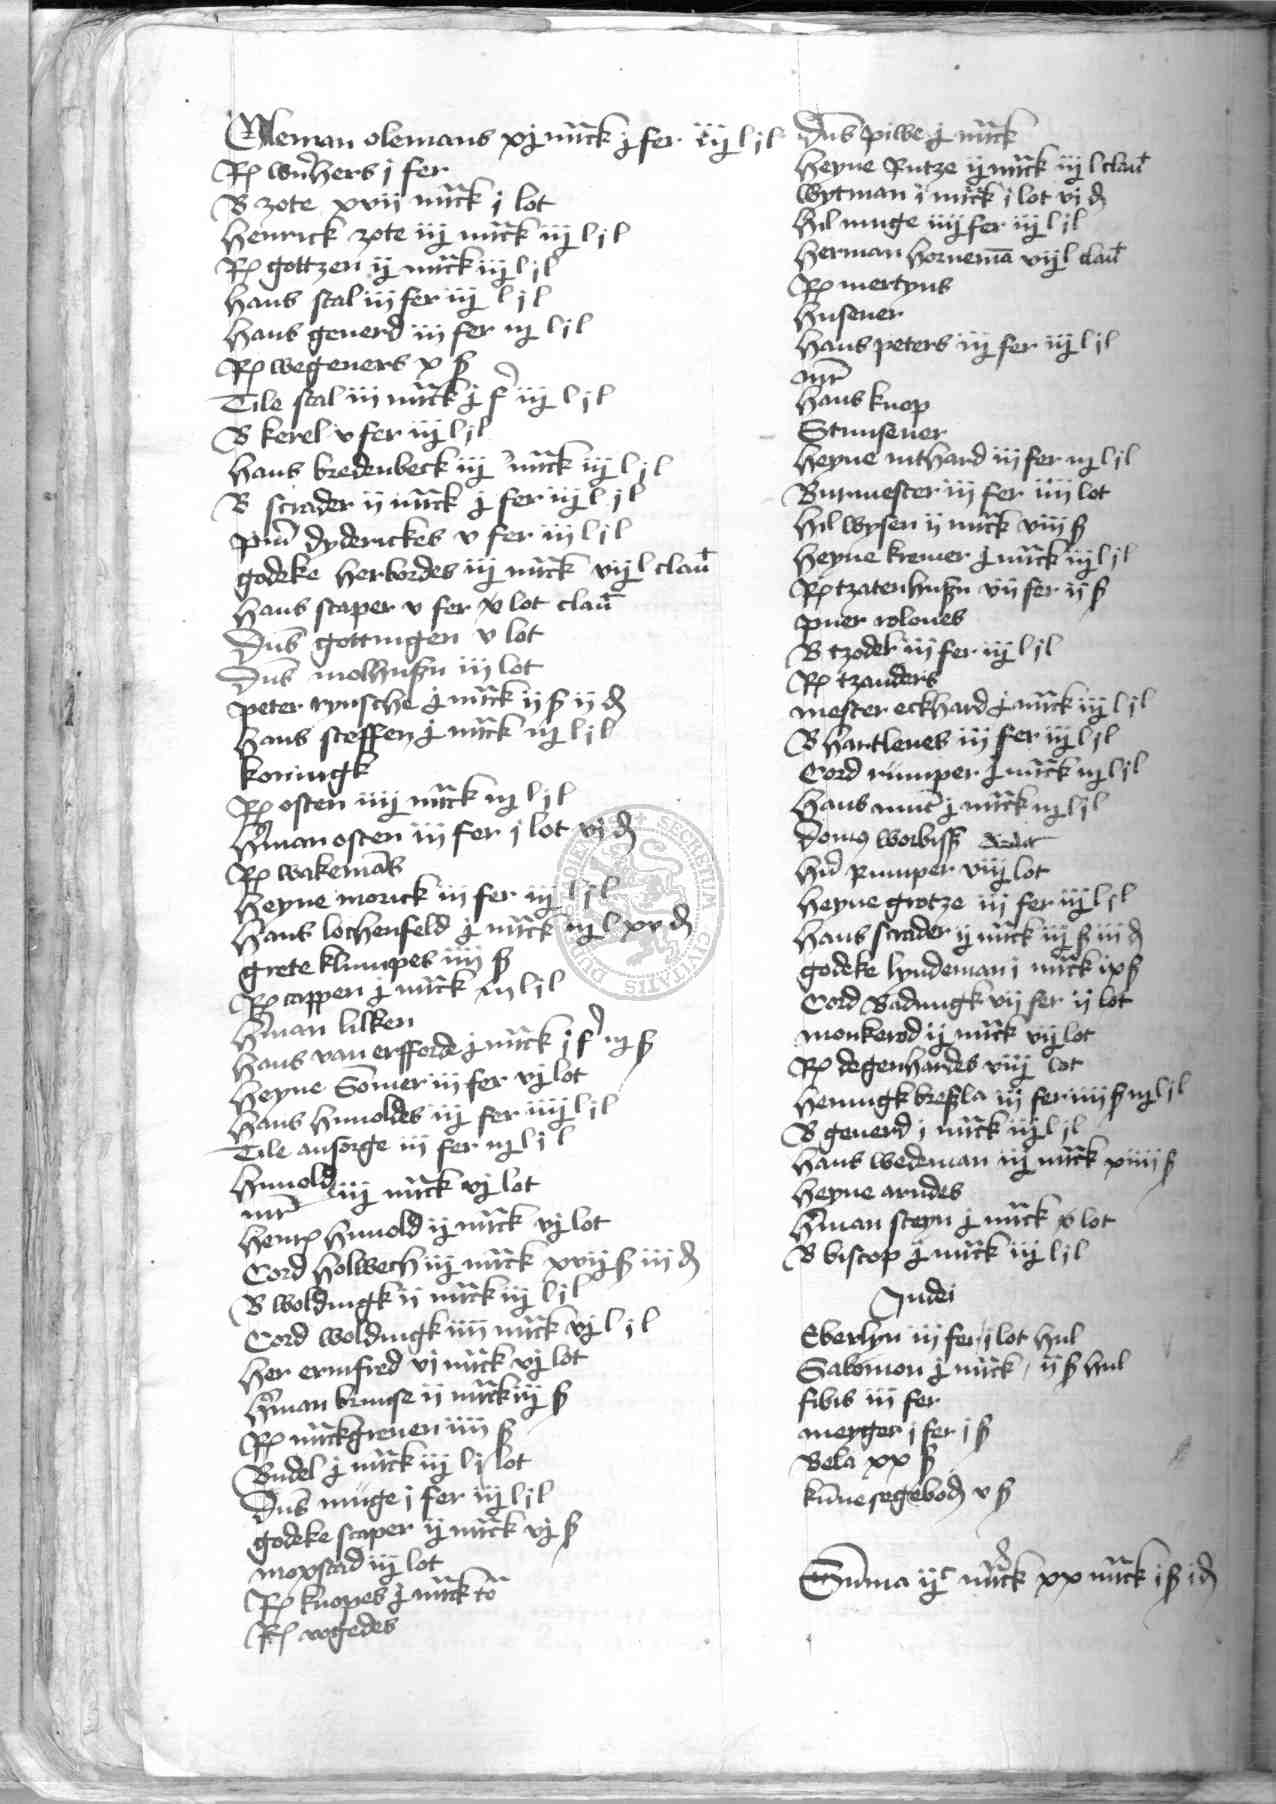 Oleman olemans xj mrck j fer iij l j l
Rp wrhers j fer
B zote xvij mrck j lot
Henrick zote iij mrck iij l j l
Rp gottzen ij mrck iij l j l
Hans stal iij fer iij l j l
Hans geuerd iij fer iij l j l
Rp wegeners x ß
Tile stal iij mrck j f iij l j l
B kerel v fer iij l j l
Hans bredenbeck iij mrck iij l j l
B scrader ij mrck j fer iij l j l
dyderickes v fer iij l j l
godeke herbordes iij mrck vij l clau
Hans scaper v fer v lot clau
Dns gottingen v lot
Dns molhußn iij lot
peter rynsche j mrck ij ß ij d
Hans steffen j mrck iij l j l
koningk
Rp osten iiij mrck iij l j l
Hman osten iij fer j lot vj d
Rp wakemans
Heyne morick iij fer iij l j l
Hans lochenfeld j mrck iij l xv d
grete klumpes iiij ß
Rp cappen j mrck iij l j l
Hman lilken
Hans van erfforde j mrck j f iij ß
Heyne Somer iij fer vj lot
Hans hunoldes iij fer iiij l j l
Tile ansorge iij fer iij l j l
Hunold
mr iij mrck vj lot
Henr hunold ij mrck vj lot
Cord holwech iij mrck xvij ß iij d
B woldingk ij mrck iij l j l
Cord woldingk iiij mrck vj l j l
Her ermfred vj mrck vj lot
Hman krinse ij mrck iij ß
Rp mrckgreuen iiij ß
Budel j mrck iij l j lot
Dns muge j fer iij l j l
godeke scaper ij mrck vj ß
moxstad iij lot
Rp knopes j mrck to
Rp vogedes
Dns piwe j mrck
Heyne Rutze ij mrck iij l clau
Wytman j mrck j lot vj d
Hil muge iiij fer iij l j l
Herman hornema vij l clau
Rp mertyns
Husener
Hans peters iij fer iij l j l
mr
Hans knop
Stunsener
Heyne nithard iij fer iij l j l
Burmester iij fer iiij lot
Hil wysen ij mrck viij ß
Heyne kremer j mrck iij l j l
Rp tzatenhußn vij fer ij ß
puer roloues
B tzoder iij fer iij l j l
Rp tzanders
mester eckhard j mrck iij l j l
B Hartleues iij fer iij l j l
Cord rumper j mrck iij l j l
Hans j mrck iij l j l
domus worbiss
Hil rumper viij lot
Heyne grotze iij fer iij l j l
Hans scrader ij mrck iij ß iij d
godeke lyndeman j mrck ix ß
Cord Badungk vij fer ij lot
monkerod ij mrck vij lot
Rp degenhardes viij lot
Henningk breßla iij fer iiij ß iij l j l
B geuerd j mrck iij l j l
Hans wedeman iij mrck xiiij ß
Heyne arndes
Hman steyn j mrck v lot
B biscop j mrck iij l j l
Judei
Eberlyn iij fer j lot hul
Salomon j mrck ij ß hul
fibis iij fer
meyger j fer j ß
Bela xx ß
kunne segebod v ß
Summa ij c mrck xx mrck j ß j d